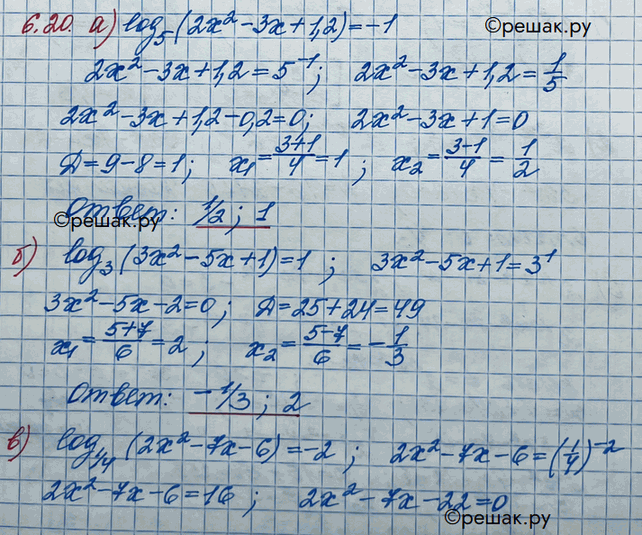 6.20. а) log₅(2x²-3x+1,2)=-1 ©решак.ру
2x²-3x+1,2=5⁻¹; 2x²-3x+1,2=1/5
2x²-3x+1,2-0,2=0; 2x²-3x+1=0
Д=9-8=1; x₁=(3+1)/4=1; x₂=(3-1)/4=1/2
Ответ: 1/2; 1
©решак.ру
б) log₃(3x²-5x+1)=1; 3x²-5x+1=3¹
3x²-5x-2=0; Д=25+24=49
x₁=(5+7)/6=2; x₂=(5-7)/6=-1/3
Ответ: -1/3; 2
в) log₁/₄(2x²-7x-6)=-2; 2x²-7x-6=(1/4)⁻²
2x²-7x-6=16; 2x²-7x-22=0
©решак.ру